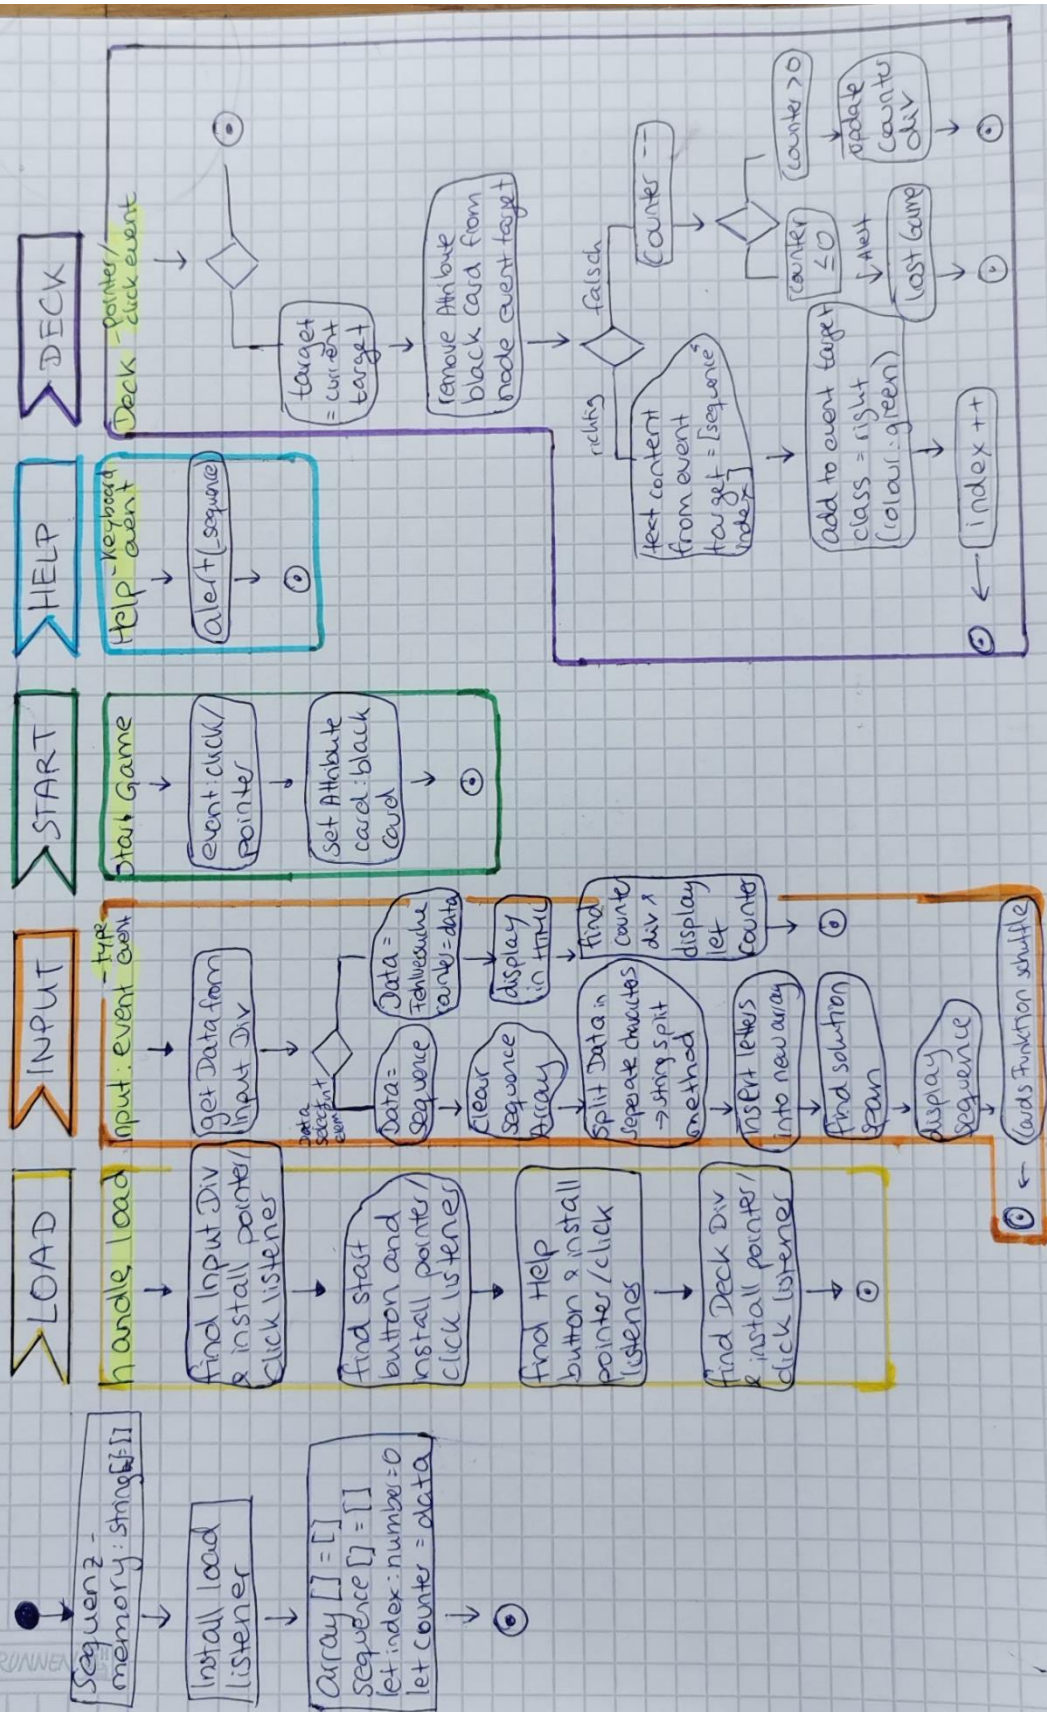 Sequenz-
memory: string[]=[]
Install load
listener
array [] = []
sequence [] = []
let index: number=0
let counter = data
LOAD
handle load
find Input Div
& install pointer/
click listener
find start
button and
install pointer/
click listener
find Help
button & install
pointer/click
listener
find Deck Div
& install pointer/
click listener
INPUT
- type
Input: event event
get Data from
Input Div
Data
select
Data=
Sequence
clear
Sequence
Array
Split Data in
seperate characters
→ string split
method
insert letters
into new array
find solution
span
display
sequence
cards funktion schuffle
Data =
Fehlversuche
counter=data
display
in HTML
find
counter
div &
display
let
counter
START
Start Game
event: click/
pointer
Set Attribute
card: black
card
HELP
Help - Keyboard
event
alert(sequence)
DECK
Deck - pointer/
click event
target
= current
target
remove Attribute
black card from
node event target
richtig
falsch
text content
from event
target = [sequence
index]
add to event target
class = right
(colour: green)
index ++
counter --
counter
≤ 0
Alert
lost Game
counter > 0
update
counter
div